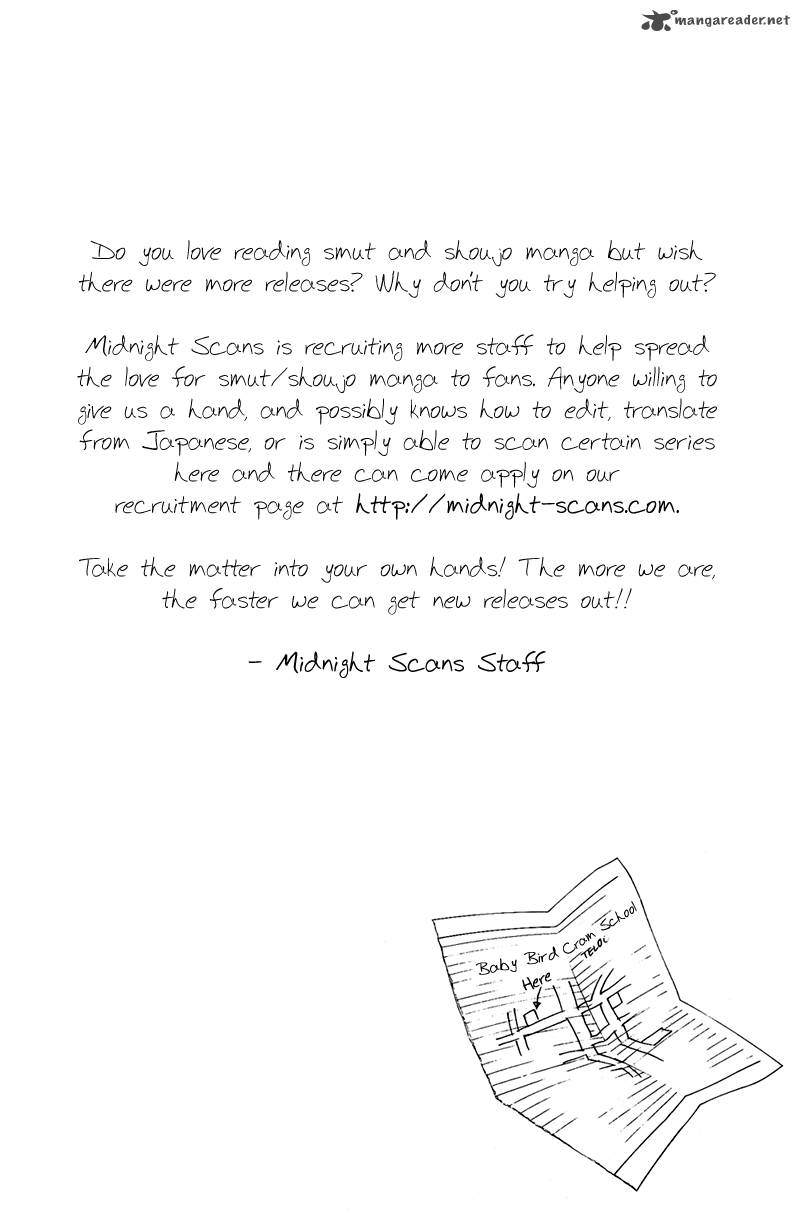 mangareader.net
Do you love reading smut and shoujo manga but wish
there were more releases? Why don't you try helping out?
Midnight Scans is recruiting more staff to help spread
the love for smut/shoujo manga to fans. Anyone willing to
give us a hand, and possibly knows how to edit, translate
from Japanese, or is simply able to scan certain series
here and there can come apply on our
recruitment page at http://midnight-scans.com.
Take the matter into your own hands! The more we are,
the faster we can get new releases out!!
- Midnight Scans Staff
Baby Bird Cram School
Here